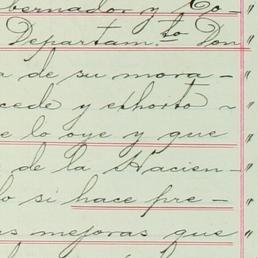 bernador y Co-
Departam.to Don
a de su mora-
cede y exhorto -
e lo oye y que
de la Hacien-
lo si hace pre-
as mejoras que